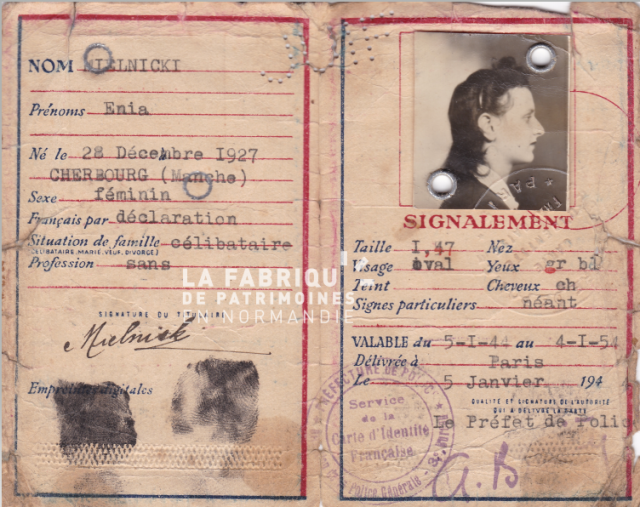 NOM MIELNICKI
Prénoms Enia
Né le 28 Décembre 1927
CHERBOURG (Manche)
Sexe féminin
Français par déclaration
Situation de famille célibataire
(CÉLIBATAIRE, MARIÉ, VEUF, DIVORCÉ)
Profession sans
SIGNATURE DU TITULAIRE
Mielnick
Empreintes digitales
SIGNALEMENT
Taille I,47 Nez
Visage oval Yeux gr bl
Teint Cheveux ch
Signes particuliers néant
VALABLE du 5-I-44 au 4-I-54
Délivrée à Paris
Le 5 Janvier 194
QUALITÉ ET SIGNATURE DE L'AUTORITÉ
QUI A DÉLIVRÉ LA CARTE
Le Préfet de Polic
PRÉFECTURE DE POLICE
Service
de la
Carte d'Identité
Française
Police Générale
LA FABRIQUE
DE PATRIMOINES
EN NORMANDIE